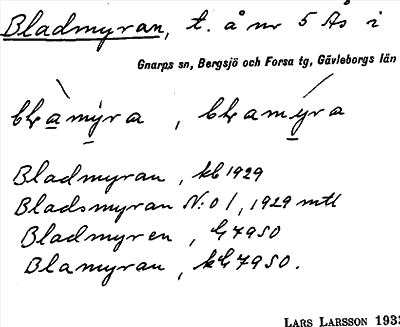 Bladmyran, t. å nr 5 Ås i
Gnarps sn, Bergsjö och Forsa tg, Gävleborgs län
blamýra, blamýra
Bladmyran, kb 1929
Bladsmyran N:o 1, 1929 mtl
Bladmyren, G 7950
Blamyran, kG 7950.
LARS LARSSON 1933